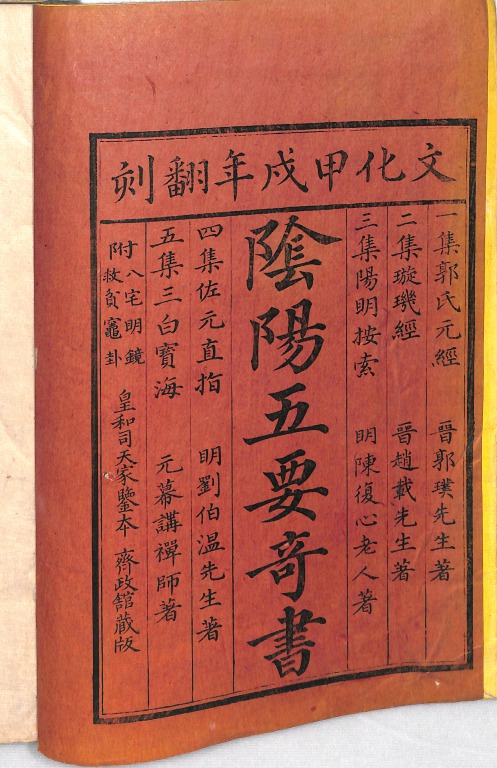 文化甲戌年翻刻
一集郭氏元經 晉郭璞先生著
二集璇璣經 晉趙載先生著
三集陽明按索 明陳復心老人著
陰陽五要奇書
四集佐元直指 明劉伯溫先生著
五集三白寶海 元幕講禪師著
付八宅明鏡
附救貧竈卦
皇和司天家鑒本 齊政舘蔵版